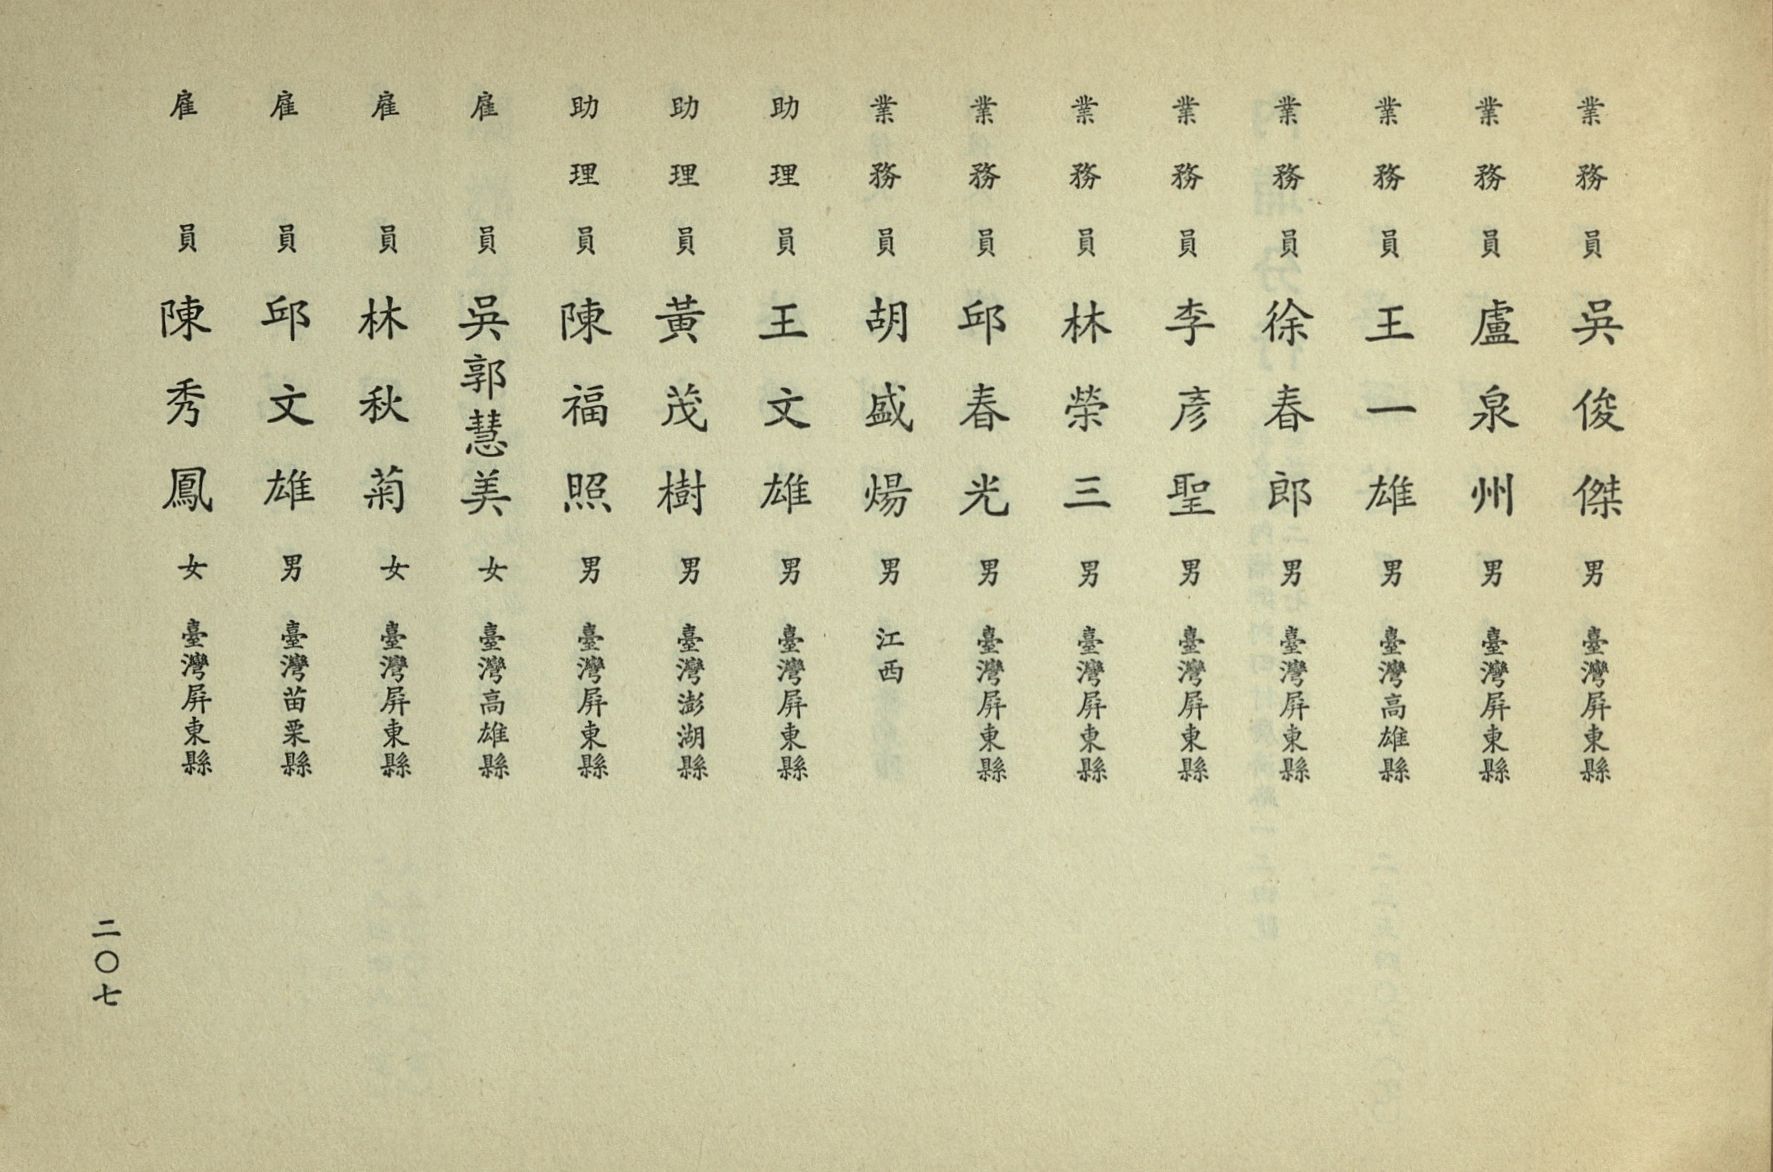 業務員 吳俊傑 男 臺灣屏東縣
業務員 盧泉州 男 臺灣屏東縣
業務員 王一雄 男 臺灣高雄縣
業務員 徐春郎 男 臺灣屏東縣
業務員 李彥聖 男 臺灣屏東縣
業務員 林榮三 男 臺灣屏東縣
業務員 邱春光 男 臺灣屏東縣
業務員 胡盛煬 男 江西
助理員 王文雄 男 臺灣屏東縣
助理員 黃茂樹 男 臺灣澎湖縣
助理員 陳福照 男 臺灣屏東縣
雇員 吳郭慧美 女 臺灣高雄縣
雇員 林秋菊 女 臺灣屏東縣
雇員 邱文雄 男 臺灣苗栗縣
雇員 陳秀鳳 女 臺灣屏東縣
二〇七